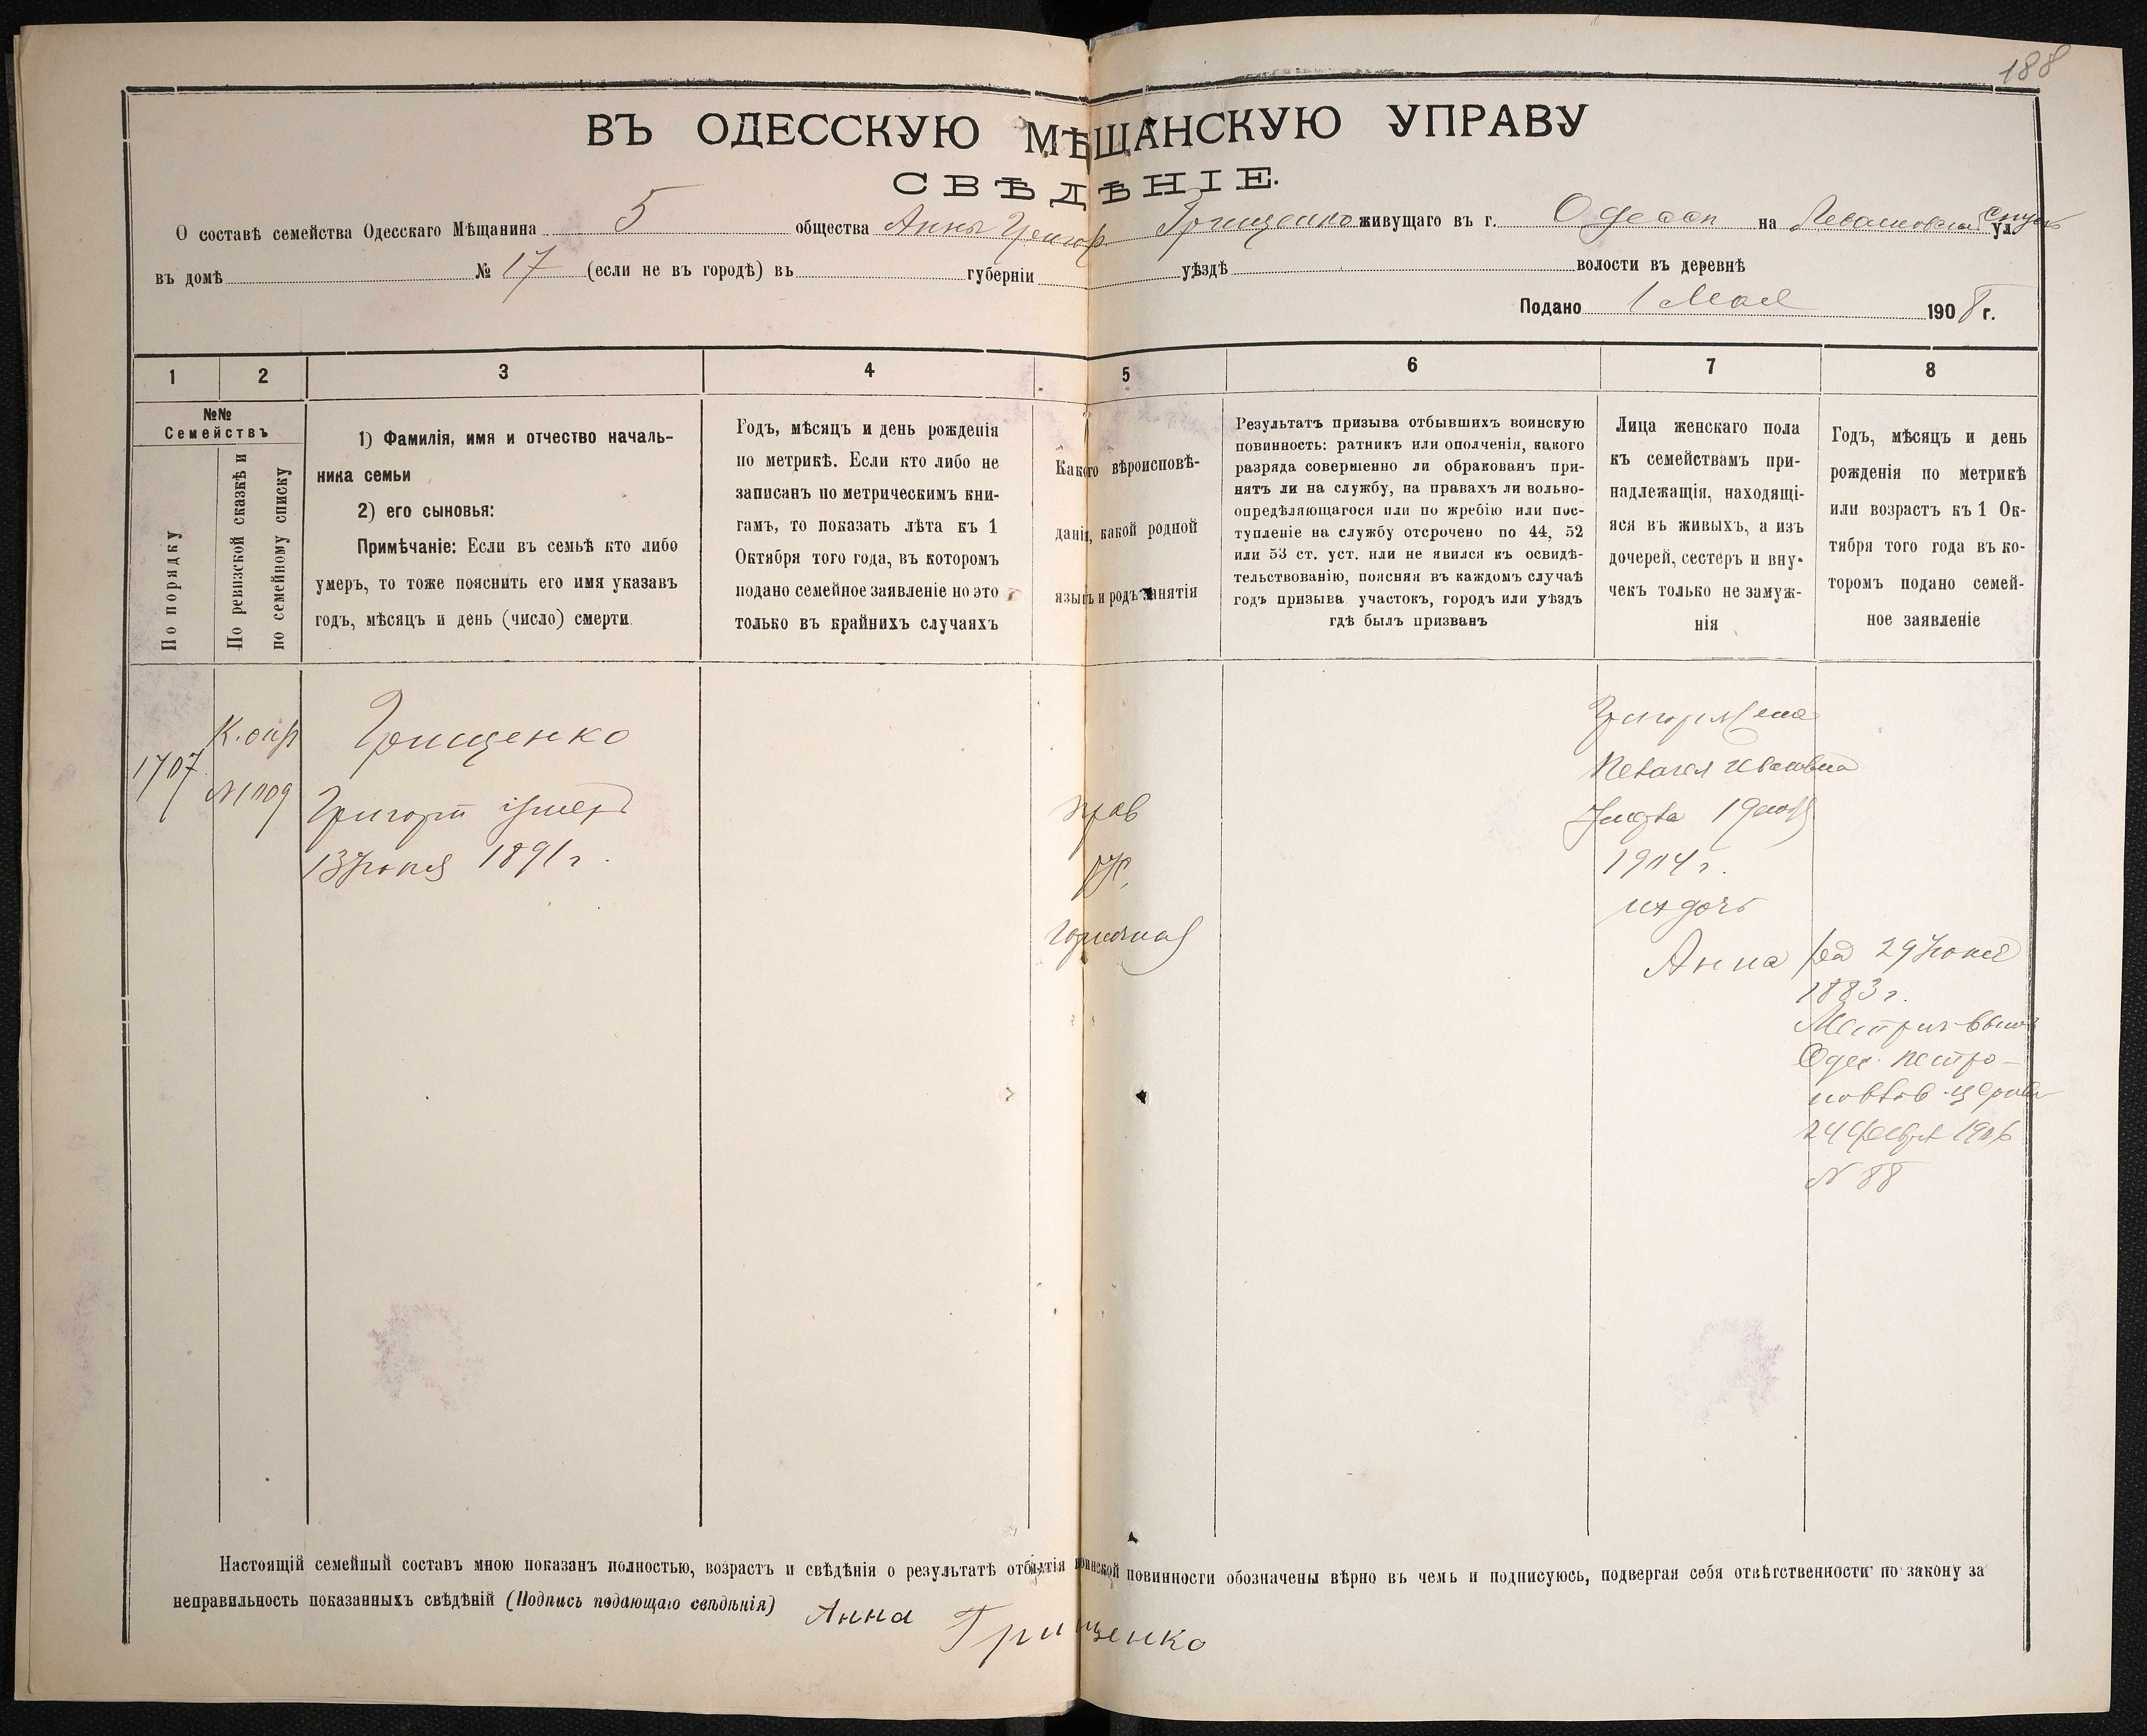 188
ВЪ ОДЕССКУЮ МѢЩАНСКУЮ УПРАВУ
СВѢДѢНІЕ.
О составѣ семейства Одесскаго Мѣщанина 5 общества Анны Григор. Грищенко живущаго въ г. Одессѣ на ул. спуск
въ домѣ № 17 (если не въ городѣ) въ губерніи уѣздѣ волости въ деревнѣ
Подано 1 Мая 1908 г.
1 2 3 4 5 6 7 8
№№
Семействъ
По порядку
По ревизской сказкѣ и
по семейному списку
1) Фамилія, имя и отчество началь-
ника семьи
2) его сыновья:
Примѣчаніе: Если въ семьѣ кто либо
умеръ, то тоже пояснить его имя указавъ
годъ, мѣсяцъ и день (число) смерти
Годъ, мѣсяцъ и день рожденія
по метрикѣ. Если кто либо не
записанъ по метрическимъ кни-
гамъ, то показать лѣта къ 1
Октября того года, въ которомъ
подано семейное заявленіе но это
только въ крайнихъ случаяхъ
Какого вѣроисповѣ-
данія, какой родной
языкъ и родъ занятія
Результатъ призыва отбывшихъ воинскую
повинность: ратникъ или ополченія, какого
разряда совершенно ли обракованъ при-
нятъ ли на службу, на правахъ ли вольно-
опредѣляющагося или по жребію или пос-
тупленіе на службу отсрочено по 44, 52
или 53 ст. уст. или не явился къ освидѣ-
тельствованію, поясняя въ каждомъ случаѣ
годъ призыва участокъ, городъ или уѣздъ
гдѣ былъ призванъ
Лица женскаго пола
къ семействамъ при-
надлежащія, находящі-
яся въ живыхъ, а изъ
дочерей, сестеръ и вну-
чекъ только не замуж-
нія
Годъ, мѣсяцъ и день
рожденія по метрикѣ
или возрастъ къ 1 Ок-
тября того года въ ко-
торомъ подано семей-
ное заявленіе
1707
№ 1109
Грищенко
Григорій умеръ
13 Іюня 1891 г.
прав
рус.
горничная
Григор жена
Пелагея Ивановна
1904 г.
их дочь
Анна
род 29 Іюня
1883 г.
Метрич выпис
Одес. Петро-
павлов церкви
24 Февр 1906
№ 88
Настоящій семейный составъ мною показанъ полностью, возрастъ и свѣдѣнія о результатѣ отбытія воинской повинности обозначены вѣрно въ чемъ и подписуюсь, подвергая себя отвѣтственности по закону за
неправильность показанныхъ свѣдѣній (Подпись подающаго свѣдѣнія) Анна Грищенко